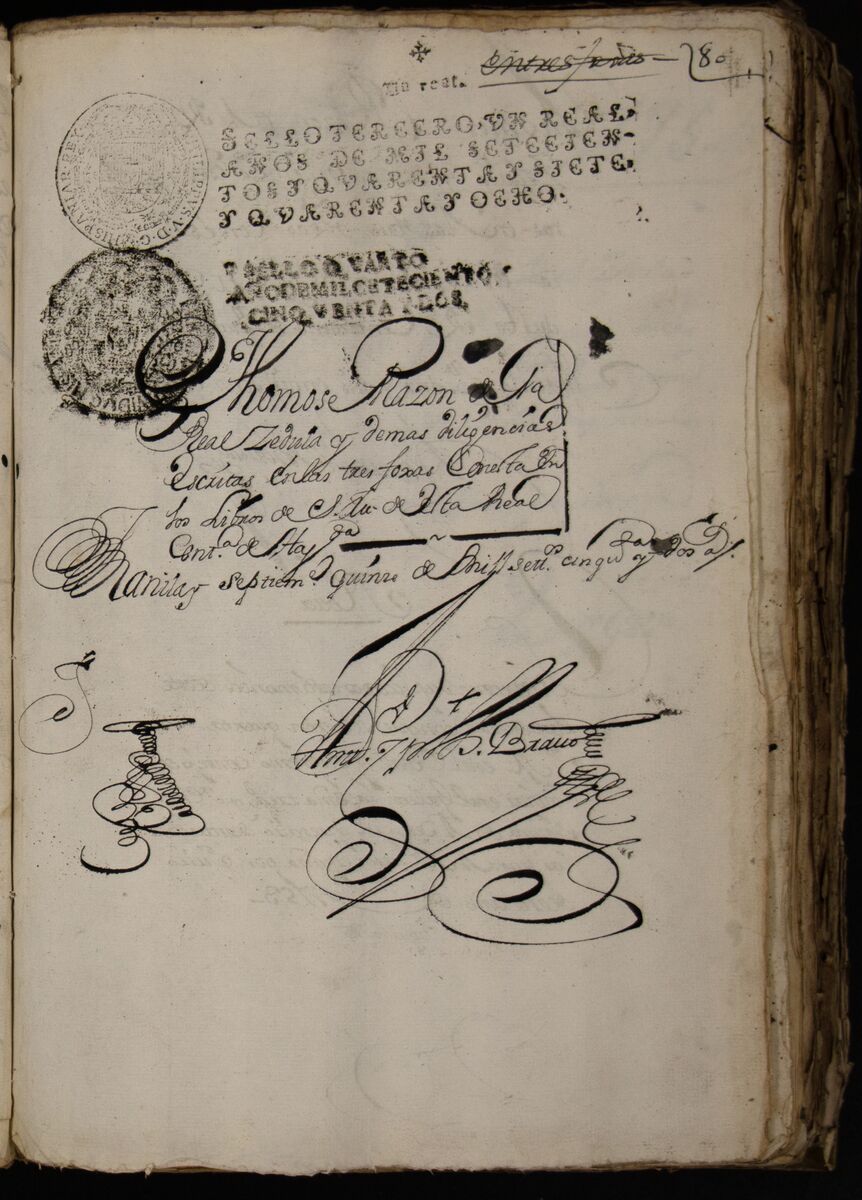 Un real.
en tres fojas 280
SELLO TERCERO, VN REAL,
AÑOS DE MIL SETECIEN-
TOS Y QVARENTA Y SIETE,
Y QVARENTA Y OCHO.
PHILIPPUS·V·D·G·HISPANIAR·REX
SELLO QVARTO
AÑO DE MIL SETECIENTOS
CINQVENTA Y DOS,
Thomose Razon de la
Real Zedula y demas diligencias
escritas en las tres foxas Conesta en
los Libros de S. M. de esta Real
Cont.a de Haz.da
Manila y Septiem.e quinze de Mill sett.s cinqu.ta y dos a.s
Bravo